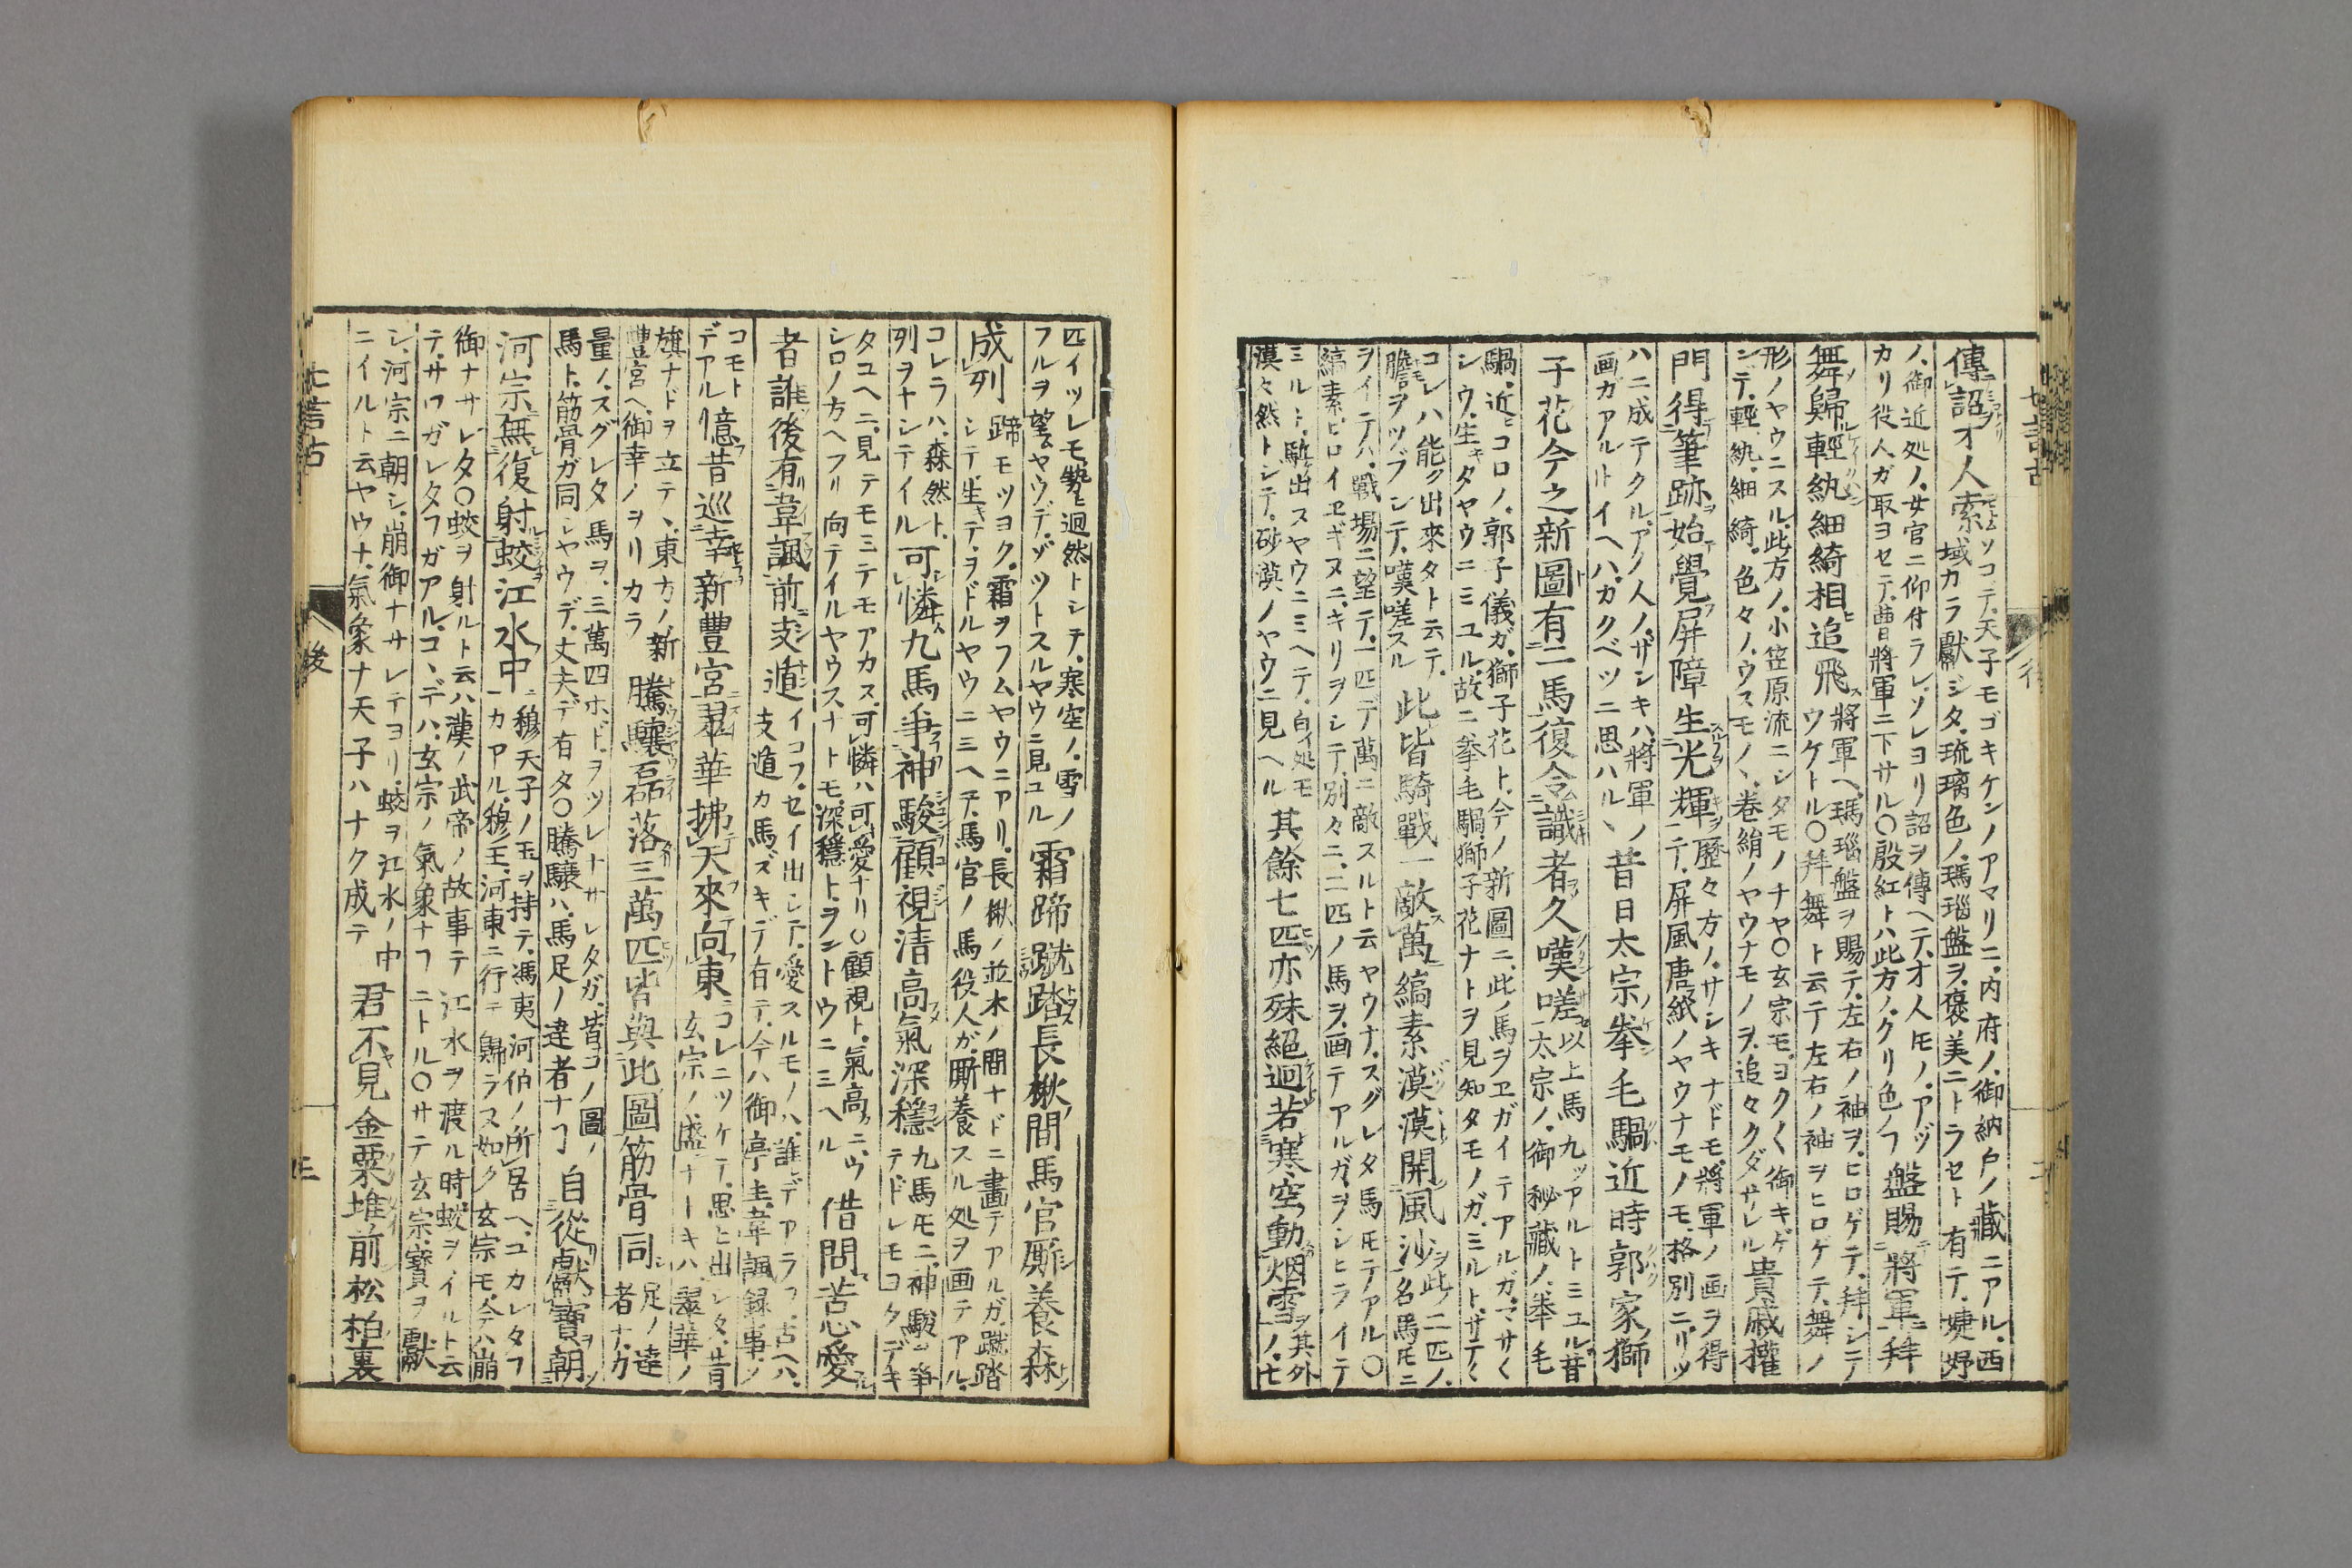 傳詔才人索 ソコデ、天子モゴキケンノアマリニ、内府ノ、御納戸ノ藏ニアル、西
域カラ獻ジタ、琉璃色ノ、瑪瑙盤ヲ、褒美ニトラセト有テ、婕妤
ノ、御近処ノ、女官ニ仰付ラレ、ソレヨリ詔ヲ傳ヘテ、才人㐧ノ、アヅ
カリ役人ガ取ヨセテ、曹將軍ニ下サル〇殷紅トハ此方ノ、クリ色ノフ 盤賜將軍拜
舞歸輕紈細綺相追飛 將軍ヘ、瑪瑙盤ヲ賜テ、左右ノ袖ヲ、ヒロゲテ、拜シニテ
ウケトル〇拜舞ト云テ左右ノ袖ヲヒロゲテ、舞ノ
形ノヤウニスル、此方ノ、小笠原流ニシタモノヂヤ〇玄宗モ、ヨク〱御キゲ
ンデ、輕紈、細綺、色々ノ、ウスモノヽ、巻絹ノヤウナモノヲ、追々クダサレル 貴戚權
門得筆跡始覺屏障生光輝 歷々方ノ、サシキナドモ、將軍ノ画ヲ得
テ、屏風唐紙ノヤウナモノモ、格別ニリツ
ハニ成テクル、アノ人ノ、ザシキハ、將軍ノ
画ガアルトイヘハ、カクベツニ思ハルヽ 昔日太宗拳毛騧近時郭家獅
子花今之新圖有二馬復令識者久嘆嗟 以上馬九ツアルトミユル、昔
太宗ノ、御秘藏ノ、拳毛
騧、近コロノ、郭子儀ガ、獅子花ト、今ノ新圖ニ、此ノ馬ヲヱガイテアルガ、マサ〱
シウ、生タヤウニミユル、故ニ拳毛騧、獅子花ナトヲ見知タモノガ、ミルト、サテ〱
コレハ能ク出來タト云テ、
膽ヲツブシテ、嘆嗟スル 此皆騎戰一敵萬縞素漠漠開風沙 此ノ二匹ノ、
名馬㐧ニ
ヲイテハ、戰場ニ望テ、一匹デ萬ニ敵スルト云ヤウナ、スグレタ馬㐧デアル〇
縞素ヒロイヱギヌニ、キリヲシテ、別々ニ、二匹ノ馬ヲ、画テアルガ、ヲシヒライテ
ミルト、騎出スヤウニミヘテ、白イ処モ
漠々然トシテ、砂漠ノヤウニ見ヘル 其餘七匹亦殊絕迥若寒空動烟雪 其外ノ、七
匹イツレモ勢ヒ迥然トシテ、寒空ノ、雪ノ
フルヲ望ムヤウデ、ゾツトスルヤウニ見ユル 霜蹄蹴踏長楸間馬官厮養森
成列 蹄モツヨク、霜ヲフムヤウニアリ、長楸ノ並木ノ間ナドニ畫テアルガ、蹴踏
シテ生キテ、ヲドルヤウニミヘテ、馬官ノ馬役人ガ、厮養スル処ヲ画テアル、
コレラハ、森然ト、
列ヲナシテイル 可憐九馬爭神駿顧視清高氣深穩 九馬㐧ニ、神駿ヲ爭
テ、ドレモヨクデキ
タユヘニ、見テモミテモアカヌ、可憐ハ可愛ナリ〇顧視ト、氣高ニ、ウ
シロノ方ヘフリ向テイルヤウス、ナトモ、深穩トヲントウニミヘル 借問苦心愛
者誰後有韋諷前支遁 イコフ、セイ出シテ、愛スルモノハ、誰デアラフ、古ヘハ、
支遁カ馬ズキデ有テ、今ハ御亭主、韋諷録事ノ
コモト
デアル 憶昔巡幸新豐宮翠華拂天來向東 コレニツケテ、思ヒ出シタ、昔
玄宗ノ盛ナトキハ、翠華ノ
旗ナドヲ立テヽ、東方ノ、新
豐宮ヘ、御幸ノヲリカラ 騰驤磊落三萬匹皆與此圖筋骨同 足ノ達
者ナ、力
量ノ、スグレタ馬ヲ、三萬四ホド、ヲツレナサレタガ、昔コノ圖ノ
馬ト、筋骨ガ同シヤウデ、丈夫デ有タ〇騰驤ハ、馬足ノ達者ナフ 自從獻寶朝
河宗無復射蛟江水中 穆天子ノ玉ヲ持テ、馮夷河伯ノ所居ヘ、ユカレタフ
カアル、穆王、河東ニ行テ歸ラヌ如ク玄宗モ、今ハ崩
御ナサレタ〇蛟ヲ射ルト云ハ漢ノ武帝ノ故事テ江水ヲ渡ル時、蛟ヲイルト云
テ、サワガレタフガアル、コヽデハ、玄宗ノ氣象ナフニトル〇サテ玄宗、寶ヲ獻
シ、河宗ニ朝シ、崩御ナサレテヨリ、蛟ヲ江水ノ中
ニイルト云ヤウナ、氣象ナ天子ハナク成テ 君不見金粟堆前松柏裏
後
三